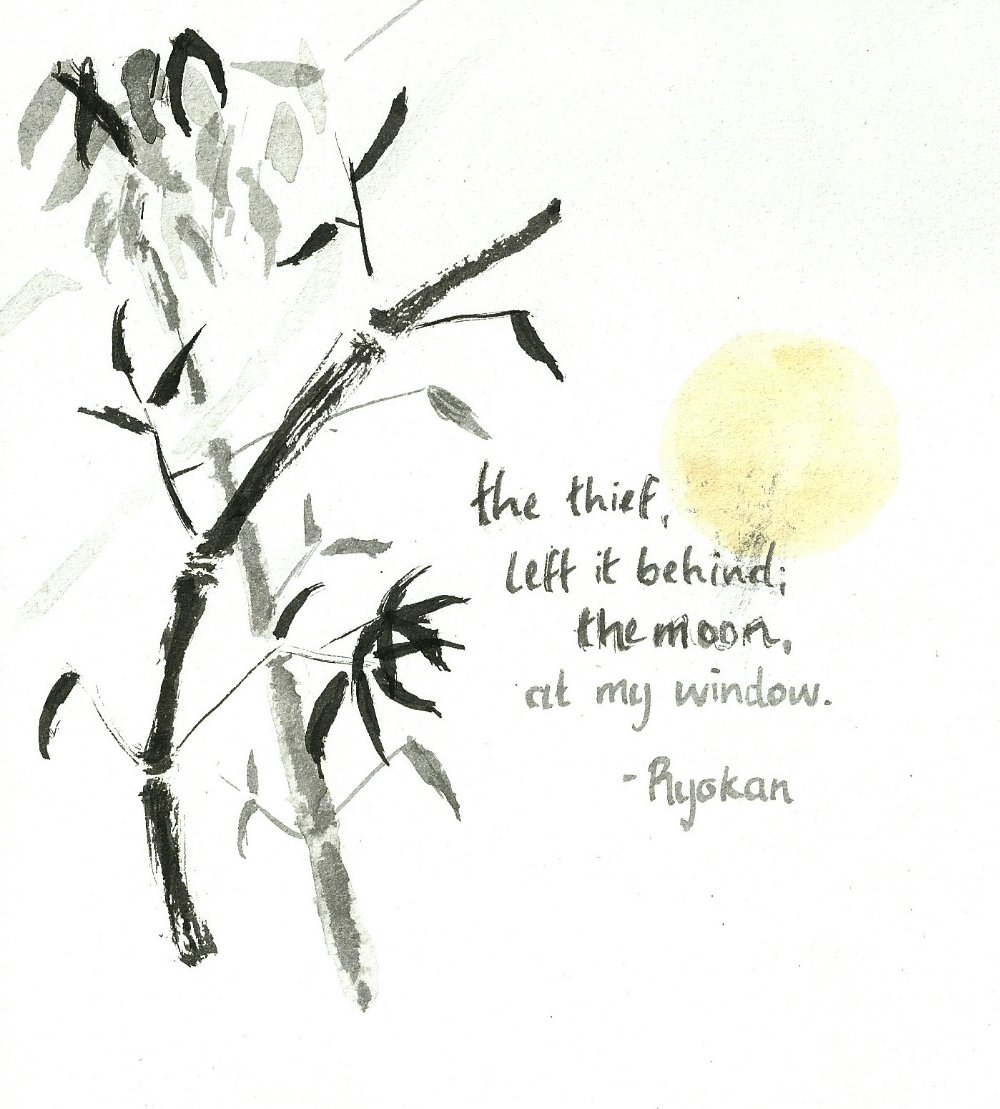 the thief,
left it behind;
the moon,
at my window.
-Ryokan